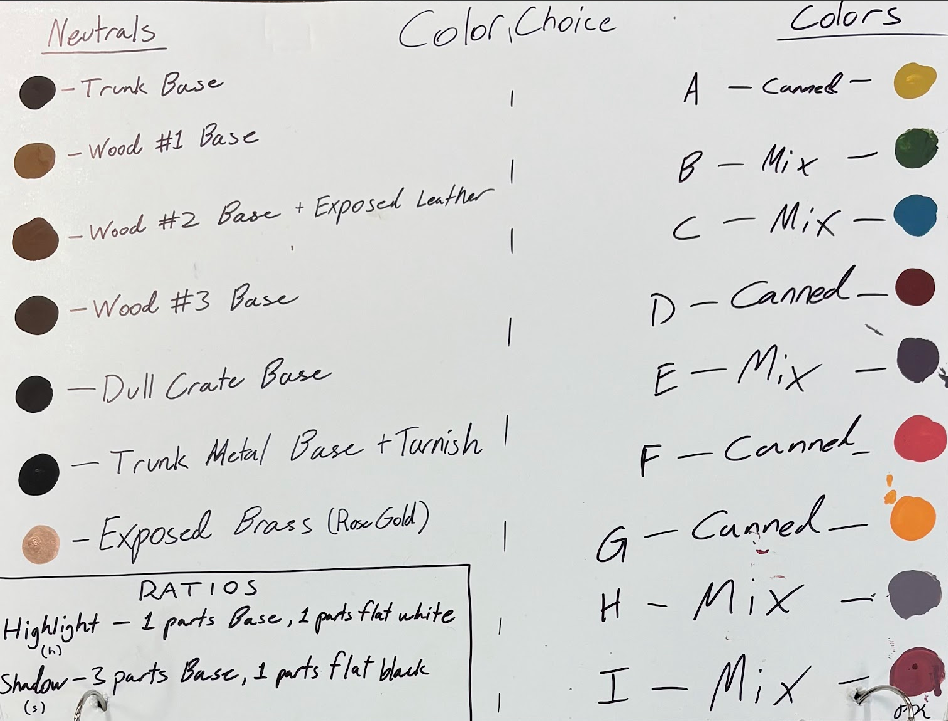 Color Choice
Neutrals
- Trunk Base
- Wood #1 Base
- Wood #2 Base + Exposed Leather
- Wood #3 Base
- Dull Crate Base
- Trunk Metal Base + Tarnish
- Exposed Brass (Rose Gold)
RATIOS
Highlight - 1 parts Base, 1 parts flat white
(h)
Shadow - 3 parts Base, 1 parts flat black
(s)
Colors
A - Canned -
B - Mix -
C - Mix -
D - Canned -
E - Mix -
F - Canned -
G - Canned -
H - Mix -
I - Mix -